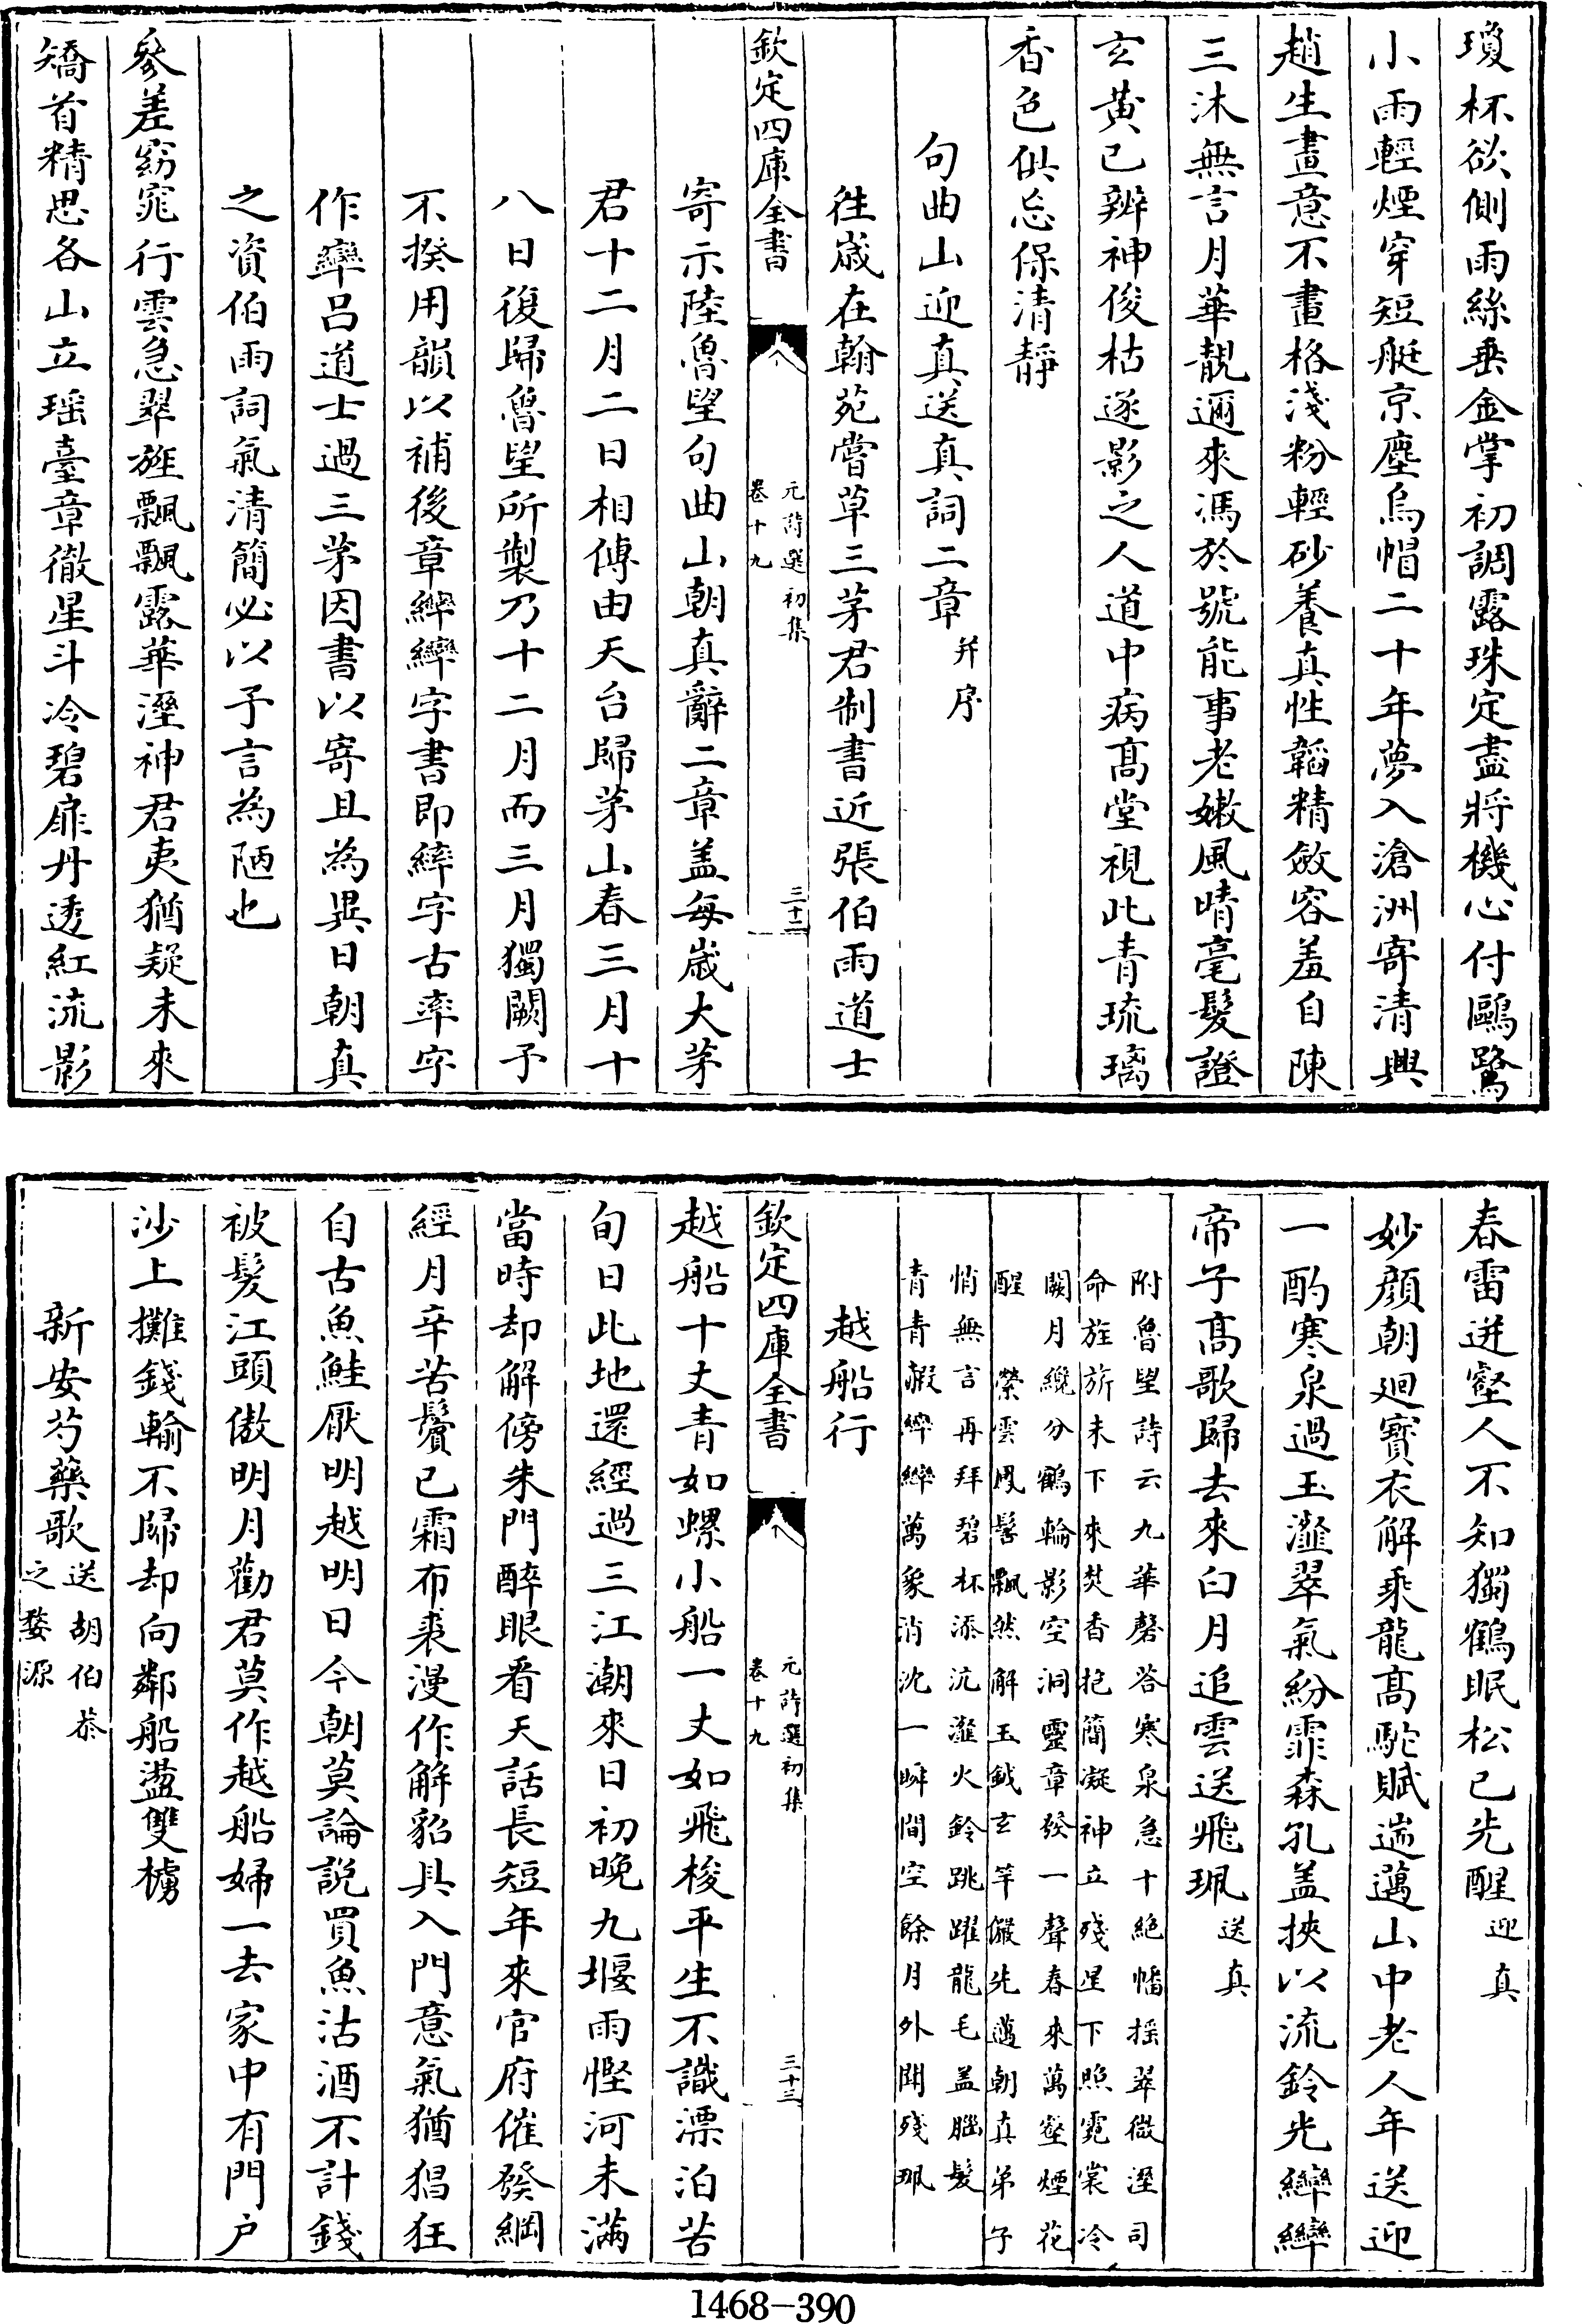 瓊杯欲側雨絲垂金掌初調露珠定盡將機心付鷗鷺
小雨輕煙穿短艇京塵烏帽二十年夢入滄洲寄清興
趙生畫意不畫格淺粉輕砂養真性韜精斂容羞自陳
三沐無言月華靚邇來馮於號能事老嫩風晴毫髮證
玄黄已辨神俊枯遂影之人道中病髙堂視此青琉璃
香色俱忘保清靜
句曲山迎真送真詞二章并序
往歲在翰苑嘗草三茅君制書近張伯雨道士
欽定四庫全書
元詩選初集
卷十九
三十二
寄示陸魯望句曲山朝真辭二章盖每歲大茅
君十二月二日相傳由天台歸茅山春三月十
八日復歸魯望所製乃十二月而三月獨闕予
不揆用韻以補後章繂繂字書即繂字古率字
作䜌吕道士過三茅因書以寄且為異日朝真
之資伯雨詞氣清簡必以予言為陋也
參差窈窕行雲急翠旌飄飄露華溼神君夷猶疑未來
矯首精思各山立瑶臺章徹星斗冷碧扉丹透紅流影
春雷迸壑人不知獨鶴眠松已先醒迎真
妙顔朝廻寳衣解乘龍髙駝賦遄邁山中老人年送迎
一酌寒泉過玉瀣翠氣紛霏森孔盖挾以流鈴光繂繂
帝子髙歌歸去來白月追雲送飛珮送真
附魯望詩云九華磬答寒泉急十絶幡摇翠微溼司
命旌旂未下來焚香抱簡凝神立殘星下照霓裳冷
闕月纔分鶴輪影空洞靈章發一聲春來萬壑煙花
醒　縈雲鳳髻飄然解玉鉞玄竿儼先邁朝真弟子
悄無言再拜碧杯添沆瀣火鈴跳躍龍毛盖腦髮
青青䴥繂繂萬象消沈一瞬間空餘月外聞殘珮
越船行
欽定四庫全書
元詩選初集
卷十九
三十三
越船十丈青如螺小船一丈如飛梭平生不識漂泊苦
旬日此地還經過三江潮來日初晚九堰雨慳河未滿
當時却解傍朱門醉眼看天話長短年來官府催發綱
經月辛苦鬢已霜布裘漫作解貂具入門意氣猶猖狂
自古魚鮭厭明越明日今朝莫論説買魚沽酒不計錢
被髪江頭傲明月勸君莫作越船婦一去家中有門户
沙上攤錢輸不歸却向鄰船盪雙櫓
新安芍藥歌送胡伯恭之婺源
1468-390